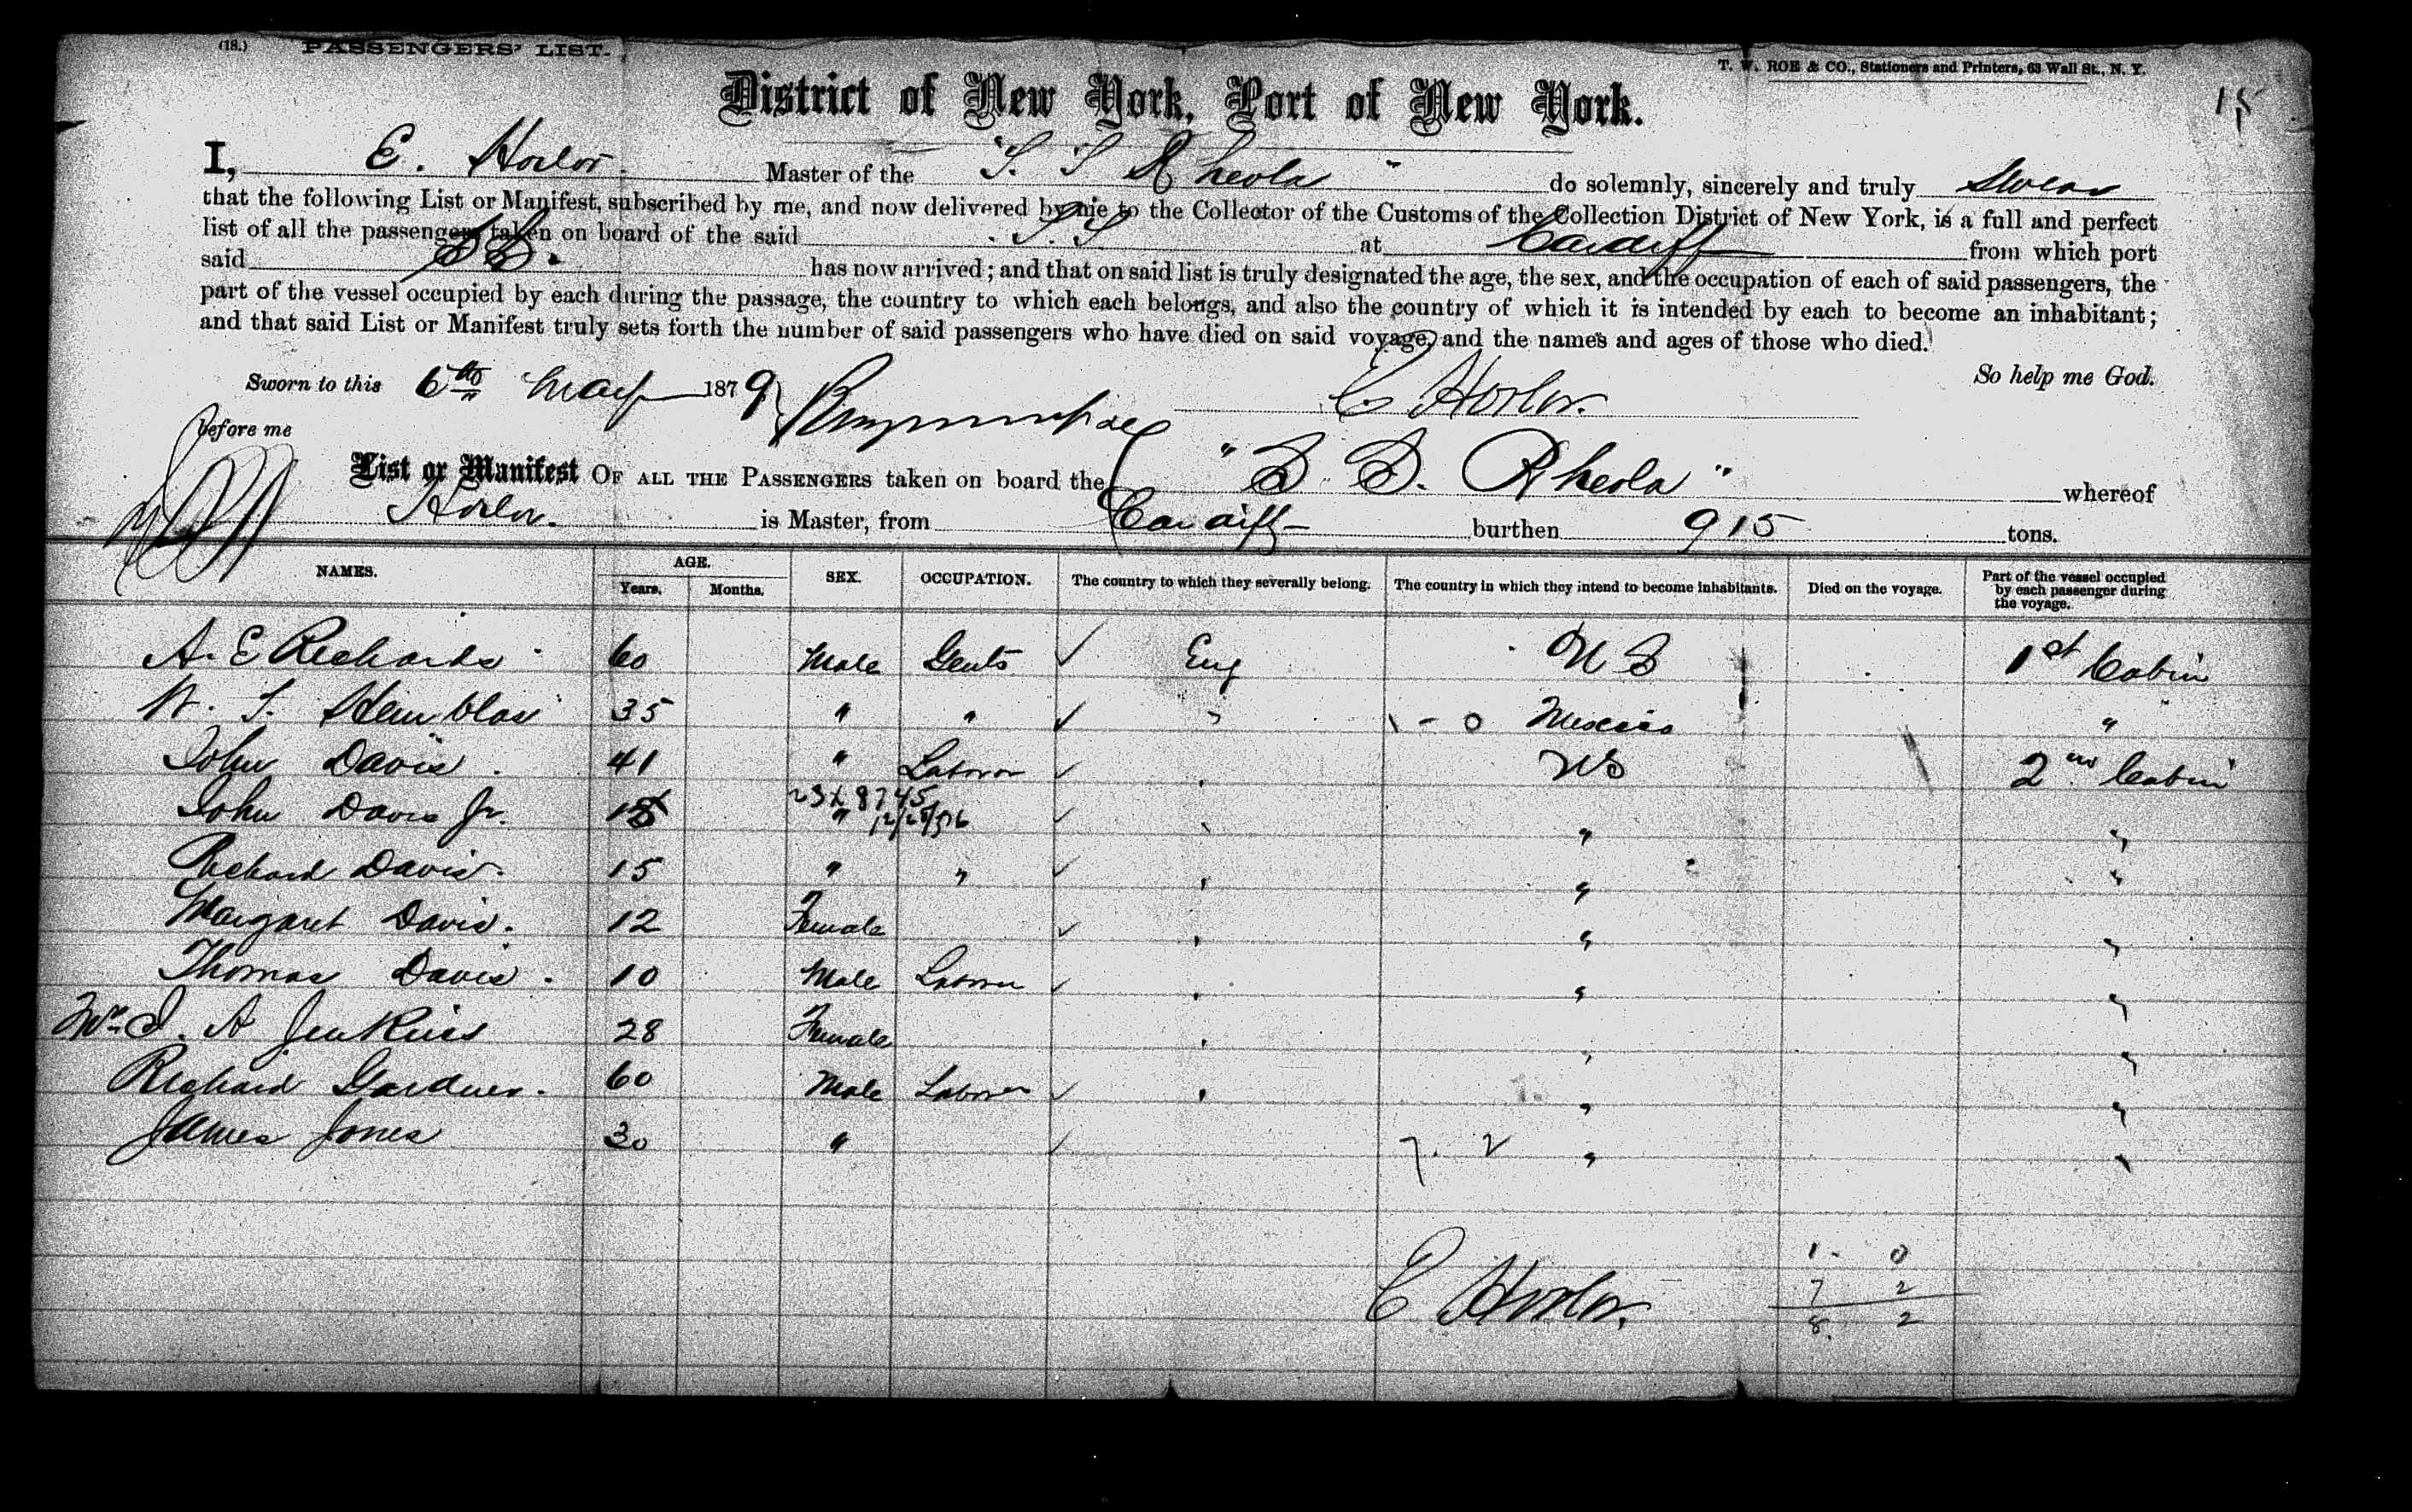 (18.) PASSENGERS' LIST.
T. W. ROE & CO., Stationers and Printers, 63 Wall St., N. Y.
15
District of New York, Port of New York.
I, E. Horlor. Master of the "S. S Rheola" do solemnly, sincerely and truly swear
that the following List or Manifest, subscribed by me, and now delivered by me to the Collector of the Customs of the Collection District of New York, is a full and perfect
list of all the passengers taken on board of the said S.S at Cardiff from which port
said SS. has now arrived; and that on said list is truly designated the age, the sex, and the occupation of each of said passengers, the
part of the vessel occupied by each during the passage, the country to which each belongs, and also the country of which it is intended by each to become an inhabitant;
and that said List or Manifest truly sets forth the number of said passengers who have died on said voyage, and the names and ages of those who died.
So help me God.
Sworn to this 6th May 1879 E Horlor.
before me
List or Manifest OF ALL THE PASSENGERS taken on board the "S. S. Rheola" whereof
Horlor. is Master, from Cardiff burthen 915 tons.
NAMES. AGE. Years. Months. SEX. OCCUPATION. The country to which they severally belong. The country in which they intend to become inhabitants. Died on the voyage. Part of the vessel occupied by each passenger during the voyage.
A. E Richards 60 Male Gents ✓ Eng U S 1st Cabin
W. S. 35 " " ✓ " 1 - 0 Mexico "
John Davis. 41 " Laborer ✓ " US 2nd Cabin
23X8745
John Davis Jr. " 12/28/36 ✓ " " "
Richard Davis. 15 " " ✓ " " "
Margaret Davis. 12 Female ✓ " " "
Thomas Davis. 10 Male Laborer ✓ " " "
Mrs J. A Jenkins 28 Female " " "
Richard Gardner. 60 Male Laborer ✓ " " "
James Jones 30 " ✓ 7. 2 " "
1 - 0
E Horlor. 7 2
8. 2